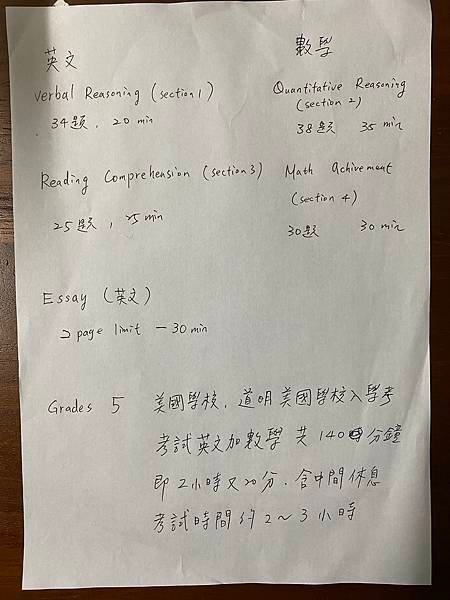 英文
Verbal Reasoning (section 1)
34題, 20 min
數學
Quantitative Reasoning
(section 2)
38題 35 min
Reading Comprehension (section 3)
25題, 25 min
Math Achivement
(section 4)
30題 30 min
Essay (英文)
2 page limit - 30 min
Grades 5 美國學校, 道明美國學校入學考
考試英文加數學 共140分鐘
即2小時又20分, 含中間休息
考試時間約2~3小時